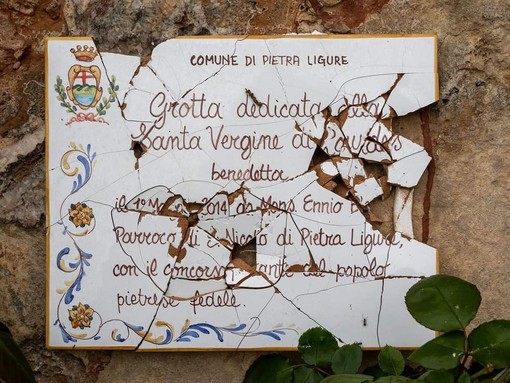 COMUNE DI PIETRA LIGURE
Grotta dedicata alla
Santa Vergine di Lourdes
benedetta
il 1º 2014 da Mons. Ennio
Parroco di S. Nicolò di Pietra Ligure,
con il concorso del popolo
pietrese fedele.